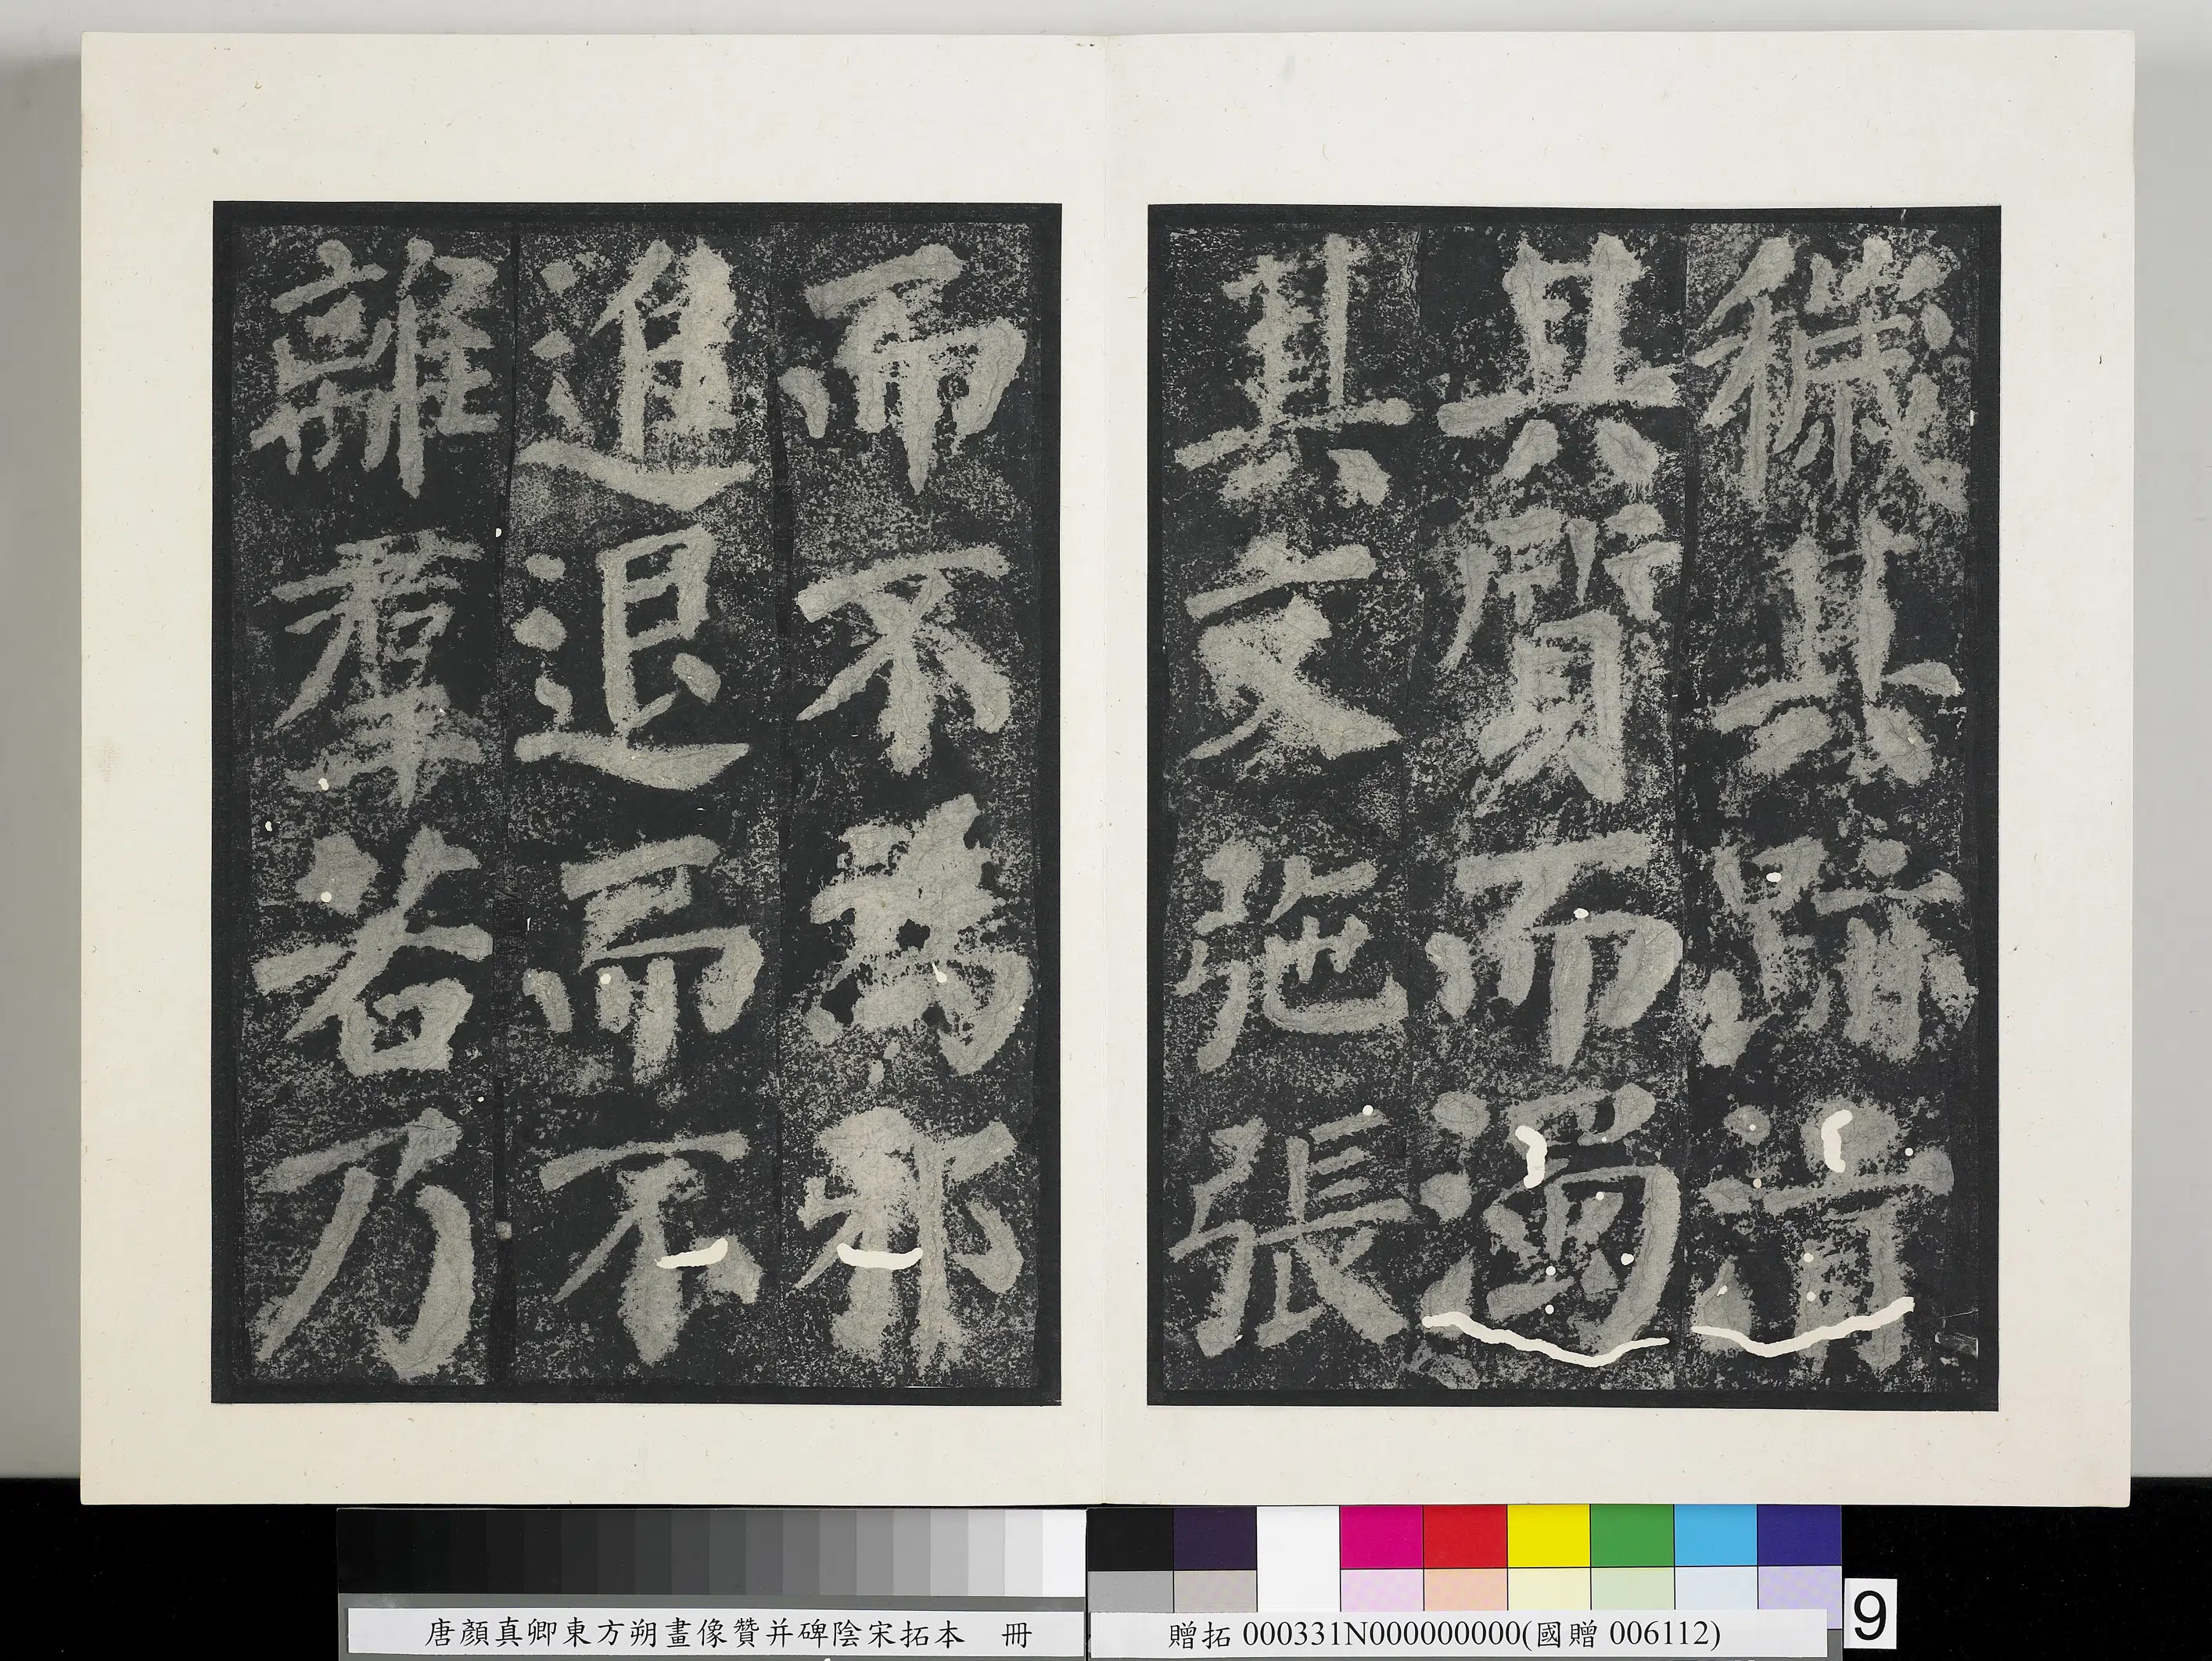 穢其跡清
其質而濁
其文弛張
而不爲邪
進退而不
離羣若乃
唐顏真卿東方朔畫像贊并碑陰宋拓本 冊
贈拓 000331N000000000(國贈 006112)
9